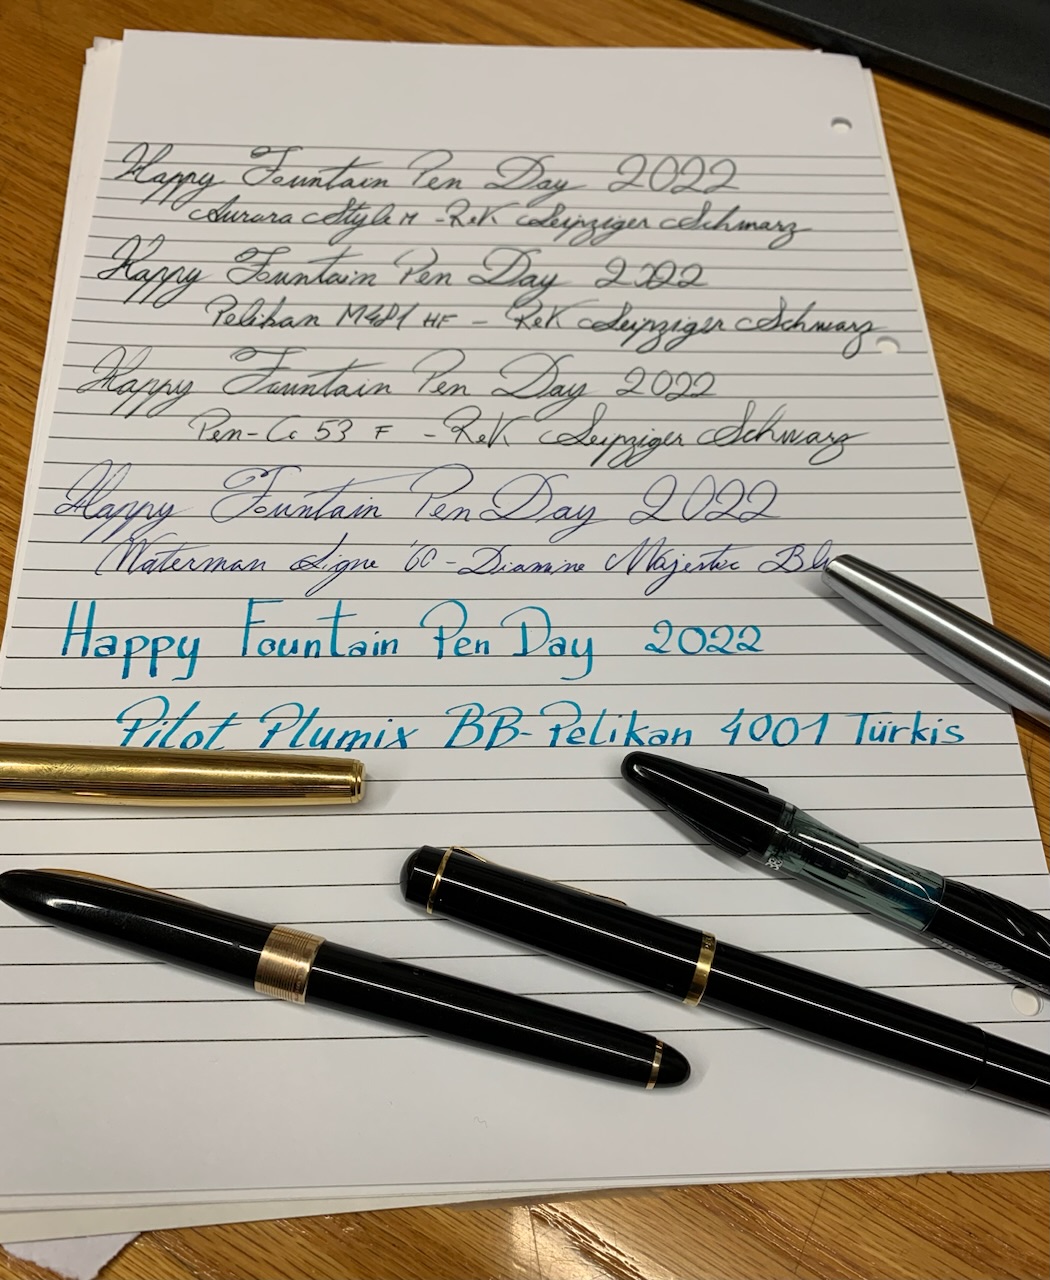 Happy Fountain Pen Day 2022
Aurora Style M - R&K Leipziger Schwarz
Happy Fountain Pen Day 2022
Pelikan M481 HF - R&K Leipziger Schwarz
Happy Fountain Pen Day 2022
Pen-Co 53 F - R&K Leipziger Schwarz
Happy Fountain Pen Day 2022
Waterman Ligne '60 - Diamine Majestic Blu
Happy Fountain Pen Day 2022
Pilot Plumix BB - Pelikan 4001 Türkis
PILOT